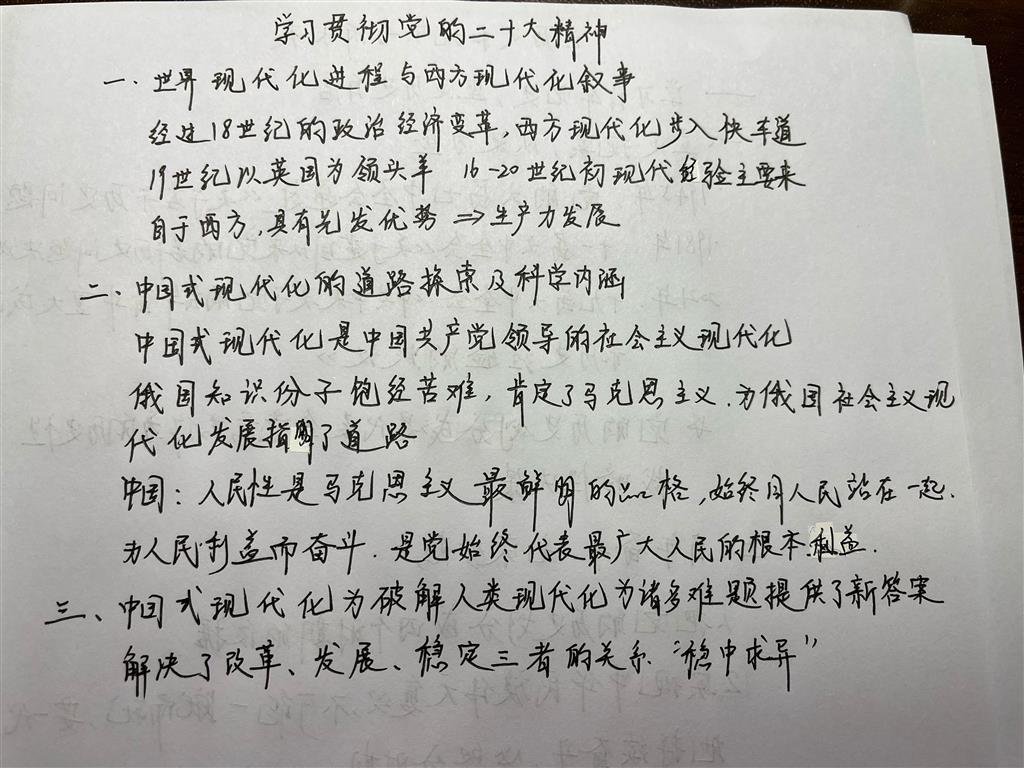 学习贯彻党的二十大精神
一、世界现代化进程与西方现代化叙事
经过18世纪的政治经济变革,西方现代化步入快车道
19世纪以英国为领头羊 16-20世纪初现代经验主要来
自于西方,具有先发优势 ⇒生产力发展
二、中国式现代化的道路探索及科学内涵
中国式现代化是中国共产党领导的社会主义现代化
俄国知识份子饱经苦难,肯定了马克思主义.为俄国社会主义现
代化发展指明了道路
中国:人民性是马克思主义最鲜明的品格,始终同人民站在一起.
为人民利益而奋斗.是党始终代表最广大人民的根本利益.
三、中国式现代化为破解人类现代化为诸多难题提供了新答案
解决了改革、发展、稳定三者的关系“稳中求异”